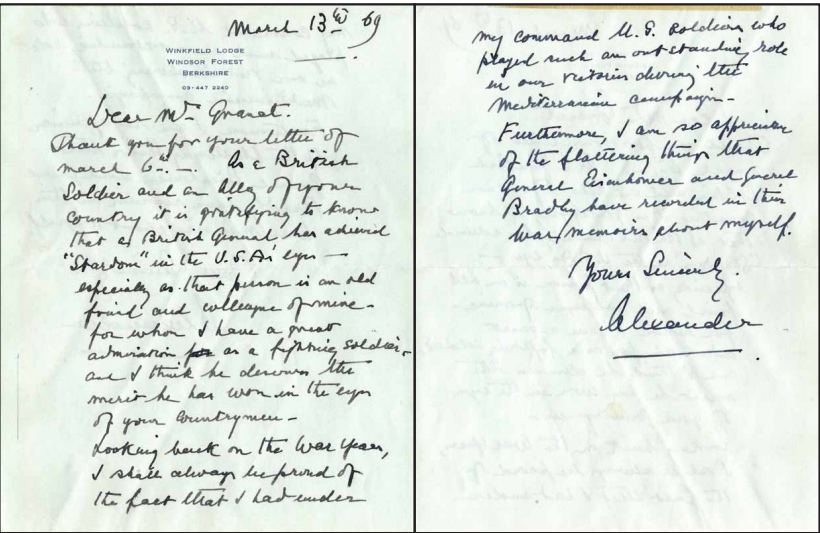 March 13th 69
WINKFIELD LODGE
WINDSOR FOREST
BERKSHIRE
09-447 2240
Dear Mr Granat.
Thank you for your letter of
march 6th. As a British
Soldier and an Ally of your
country it is gratifying to know
that a British General has achieved
"Stardom" in the U.S.A's eyes —
especially as that person is an old
friend and colleague of mine -
for whom I have a great
admiration for as a fighting soldier -
and I think he deserves the
merit he has won in the eyes
of your countrymen -
Looking back on the War years,
I shall always be proud of
the fact that I had under
my command U.S. soldiers who
played such an outstanding role
in our victories during the
Mediterranean campaign -
Furthermore, I am so appreciative
of the flattering things that
General Eisenhower and General
Bradly have recorded in their
War memoirs about myself.
Yours Sincerely.
Alexander